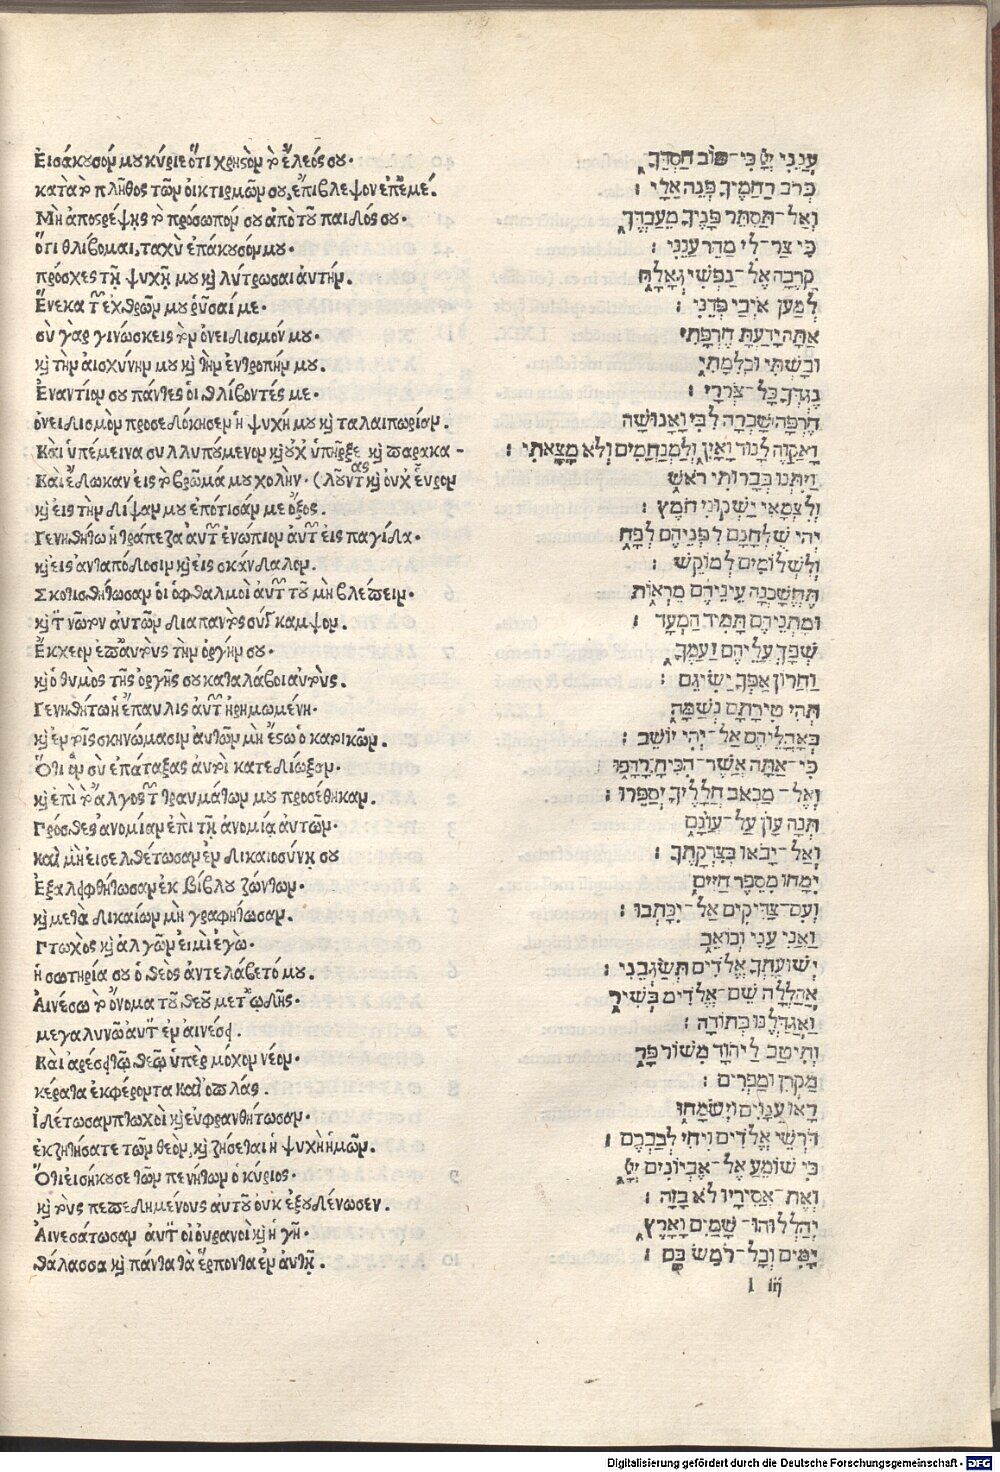 Εισάκυσόμ μυ κύριε ὅτι χρηςὸμ τὸ ἔλεός συ·
κατὰ τὸ πλῆθος τῶμ οἰκτιρμῶμ συ, ἐπίβλεψον ἐπ᾽ ἐμέ.
Μὴ ἀποςρέψῃς τὸ πρόσωπόμ συ ἀπὸ τοῦ παιδός συ·
ὅτι θλίβομαι, ταχὺ ἐπάκυσόμ μυ·
πρόσχες τῇ ψυχῇ μυ κỳ λύτρωσαι ἀυτήμ.
Ἕνεκα τῶν ἐχθρῶμ μυ ῥῦσαί με·
σὺ γαρ γινώσκεις τὸμ ὀνειδισμόν μυ·
κỳ τὴμ ἀισχύνημ μυ κỳ τὴμ ἐντροπήμ μυ.
Ἐναντίομ συ πάντες ὁι θλίβοντές με·
ὀνειδισμὸμ προσεδόκησεμ ἡ ψυχή μυ κỳ ταλαιπωρίαμ.
Καὶ ὑπέμεινα συλλυπύμενομ κỳ ὐχ ὑπῆρξε κỳ παρακα-
Καὶ ἔδωκαν εις τὸ βρῶμά μυ χολήν· (λοῦντας κỳ ὀυχ εὗρομ
κỳ εις τὴμ δίψαμ μυ ἐπότισάμ με ὄξος·
Γενηθήτω ἡ τράπεζα ἀυτῶν ἐνώπιομ ἀυτῶν εἰς παγίδα·
κỳ εις ἀνταπόδοσιμ κỳ εις σκάνδαλομ.
Σκοτισθήτωσαμ ὁι ὀφθαλμοὶ ἀυτῶν τοῦ μὴ βλέπειμ·
κỳ τὸν νῶτομ αυτῶμ διαπαντὸς σύγκαμψομ.
Ἔκχεομ ἐπ᾽ ἀυτὺς τὴμ ὀργήμ συ·
κỳ ὁ θυμὸς τῆς ὀργῆς συ καταλάβοι αυτύς.
Γενηθήτω ἡ ἔπαυλις ἀυτῶν ἠρημωμένη·
κỳ ἐμ τοῖς σκηνώμασιμ ἀυτῶμ μὴ ἔςω ὁ κατοικῶμ.
Ὅτι ὃμ σὺ ἐπάταξας ἀυτοὶ κατεδίωξαμ·
κỳ ἐπὶ τὸ ἄλγος τῶν τραυμάτωμ μυ προσέθηκαμ.
Πρόσθες ἀνομίαμ ἐπὶ τῇ ἀνομίᾳ ἀυτῶμ·
καὶ μὴ ἐισελθέτωσαμ ἐμ δικαιοσύνῃ συ
Ἐξαλειφθήτωσαμ ἐκ βίβλυ ζώντωμ·
κỳ μετὰ δικαίωμ μὴ γραφήτωσαμ.
Πτωχὸς κỳ ἀλγῶμ ἐιμὶ ἐγὼ·
ἡ σωτηρία συ ὁ θεὸς ἀντελάβετό μυ.
Ἀινέσω τὸ ὄνομα τοῦ θεοῦ μετ᾽ ᾠδῆς·
μεγαλυνῶ ἀυτὸν ἐμ αινέσει.
Καὶ αρέσει τῷ θεῷ ὑπὲρ μόχομ νέομ·
κέρατα ἐκφέροντα καὶ ὁπλάς.
Ἰδέτωσαμ πτωχοὶ κỳ ἐυφρανθήτωσαμ·
ἐκζητήσατε τὸμ θεὸμ, κỳ ζήσεται ἡ ψυχὴ ἡμῶμ.
Ὅτι εισήκυσε τῶμ πενήτωμ ὁ κύριος·
κỳ τὺς πεπεδημένους ἀυτοῦ ὀυκ ἐξουδένωσεν.
Ἀινεσάτωσαμ ἀυτὸν ὁι ὀυρανοὶ κỳ ἡ γῆ·
θάλασσα κỳ πάντα τὰ ἕρποντα ἐμ ἀυτῇ.
עֲנֵנִי יְיָ כִּי־טוֹב חַסְדֶּךָ
כְּרֹב רַחֲמֶיךָ פְּנֵה אֵלָי :
וְאַל־תַּסְתֵּר פָּנֶיךָ מֵעַבְדֶּךָ
כִּי צַר־לִי מַהֵר עֲנֵנִי :
קָרְבָה אֶל־נַפְשִׁי גְאָלָהּ
לְמַעַן אֹיְבַי פְּדֵנִי :
אַתָּה יָדַעְתָּ חֶרְפָּתִי
וּבָשְׁתִּי וּכְלִמָּתִי
נֶגְדְּךָ כָּל־צוֹרְרָי :
חֶרְפָּה שָׁבְרָה לִבִּי וָאָנוּשָׁה
וָאֲקַוֶּה לָנוּד וָאַיִן וְלַמְנַחֲמִים וְלֹא מָצָאתִי :
וַיִּתְּנוּ בְּבָרוּתִי רֹאשׁ
וְלִצְמָאִי יַשְׁקוּנִי חֹמֶץ :
יְהִי שֻׁלְחָנָם לִפְנֵיהֶם לְפָח
וְלִשְׁלוֹמִים לְמוֹקֵשׁ :
תֶּחְשַׁכְנָה עֵינֵיהֶם מֵרְאוֹת
וּמָתְנֵיהֶם תָּמִיד הַמְעַד :
שְׁפָךְ עֲלֵיהֶם זַעְמֶךָ
וַחֲרוֹן אַפְּךָ יַשִּׂיגֵם :
תְּהִי טִירָתָם נְשַׁמָּה
בְּאָהֳלֵיהֶם אַל־יְהִי יוֹשֵׁב :
כִּי־אַתָּה אֲשֶׁר־הִכִּיתָ רָדָפוּ
וְאֶל־מַכְאוֹב חֲלָלֶיךָ יְסַפֵּרוּ :
תְּנָה עָוֹן עַל־עֲוֹנָם
וְאַל־יָבֹאוּ בְּצִדְקָתֶךָ :
יִמָּחוּ מִסֵּפֶר חַיִּים
וְעִם־צַדִּיקִים אַל־יִכָּתֵבוּ :
וַאֲנִי עָנִי וְכוֹאֵב
יְשׁוּעָתְךָ אֱלֹדִים תְּשַׂגְּבֵנִי :
אֲהַלְלָה שֵׁם־אֱלֹדִים בְּשִׁיר
וַאֲגַדְּלֶנּוּ בְתוֹדָה :
וְתִיטַב לַיהוָֹד מִשּׁוֹר פָּר
מַקְרִן וּמַפְרִים :
רָאוּ עֲנָוִים וְיִשְׂמָחוּ
דֹּרְשֵׁי אֱלֹדִים וִיחִי לְבַבְכֶם :
כִּי שׁוֹמֵעַ אֶל־אֶבְיוֹנִים יְיָ
וְאֶת־אֲסִירָיו לֹא בָזָה :
יְהַלְלוּהוּ שָׁמַיִם וָאָרֶץ
יַמִּים וְכָל־רֹמֵשׂ בָּם :
l iij
Digitalisierung gefördert durch die Deutsche Forschungsgemeinschaft - DFG